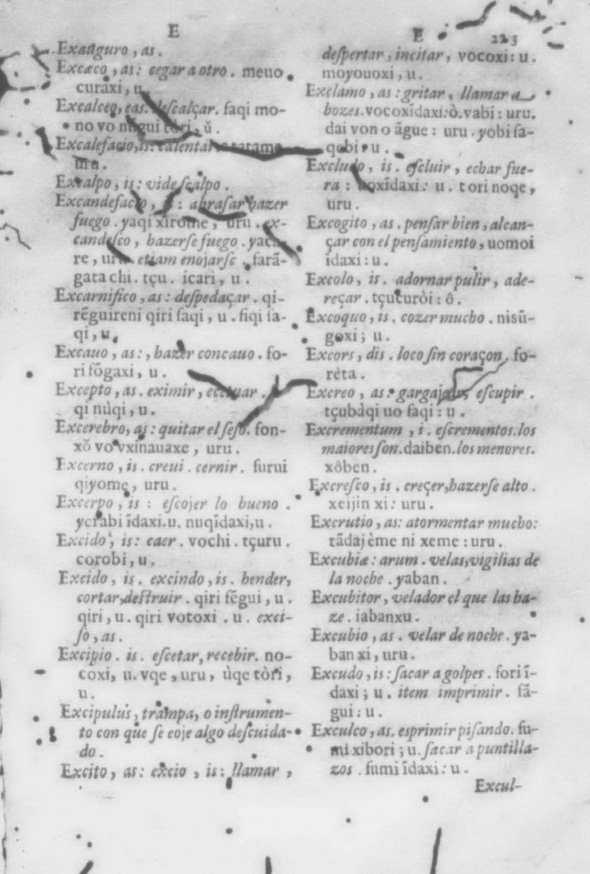 E
E 223
Exauguro, as.
Excæco, as: cegar a otro. meuo
curaxi, u.
Excalceo, eas. descalçar. faqi mo-
no vo nugui tori. ŭ.
Excalefacio, is: calentar
uru.
Exralpo, is: vide scalpo.
Excandefacio, is: abrasar hazer
fuego. yaqi xirome, uru. ex-
candesco, hazerse fuego. yac
re, uru. etiam enojarse, farã-
gata chi. tçu. icari, u.
Excarnifico, as: despedaçar. qi-
rẽguireni qiri saqi, u. fiqi sa-
qi, u.
Excauo, as:, hazer concauo. fo-
ri fôgaxi, u.
Excepto, as. eximir, ecetuar.
qi nùqi, u.
Excerebro, as: quitar el seso. fon-
xŏ vo vxinauaxe, uru.
Excerno, is. creui. cernir. furui
qiyome, uru.
Excerpo, is: escojer lo bueno.
yerabi ĩdaxi.u. nuqĩdaxi,u.
Excido, is: caer. vochi. tçuru.
corobi, u.
Excido, is. excindo, is. hender,
cortar, destruir. qiri fẽgui, u.
qiri, u. qiri votoxi. u. exci-
so, as.
Excipio. is. escetar, recebir. no-
coxi, u. vqe, uru, ùqe tòri,
u.
Excipulus, trampa, o instrumen-
to con que se coje algo descuida-
do.
Excito, as: excio, is: llamar,
despertar, incitar, vocoxi: u.
moyouoxi, u.
Exclamo, as: gritar, llamar a
bozes. vocoxidaxi: ò. vabi: uru.
dai von o ãgue: uru. yobi sa-
qebi, u.
Excludo, is. escluir, echar fue-
ra: voxĩdaxi: u. tori noqe,
uru.
Excogito, as. pensar bien, alcan-
çar con el pensamiento, uomoi
idaxi: u.
Excolo, is. adornar pulir, ade-
reçar. tçucuròi: ô.
Excoquo, is. cozer mucho. nisũ-
goxi; u.
Excors, dis. loco sin coraçon. fo-
rèta.
Excreo, as: gargajear, escupir.
tçubàqi uo faqi: u.
Excrementum, i. escrementos.los
maiores son.daiben.los menores.
xôben.
Excresco, is. creçer,hazerse alto.
xeijin xi: uru.
Excrutio, as: atormentar mucho:
tãdajème ni xeme: uru.
Excubiæ: arum. velas, vigilias de
la noche. yaban.
Excubitor, velador el que las ha-
ze. iabanxu.
Excubio, as. velar de noche. ya-
ban xi, uru.
Excudo, is: sacar a golpes. fori ĩ-
daxi; u. item imprimir. fã-
gui: u.
Exculco, as. esprimir pisando. fu-
mi xibori; u. sacar a puntilla-
zos. fumi ĩdaxi: u.
Excul-